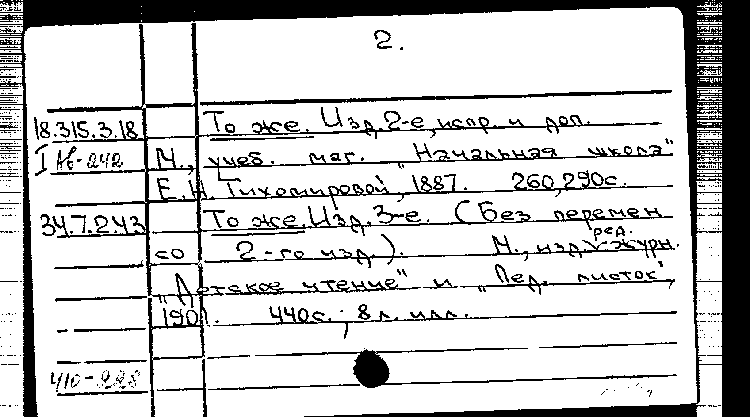 2.
18.315.3.18 То же. Изд. 2-е, испр. и доп.
I Ав-242 М., учеб. маг. "Начальная школа"
Е.Н. Тихомировой, 1887. 260,290с.
34.7.243 То же. Изд. 3-е. (Без перемен
со 2-го изд.). М., изд. ред. журн.
"Детское чтение" и "Пед. листок",
1901. 440с.; 8 л. илл.
410-228